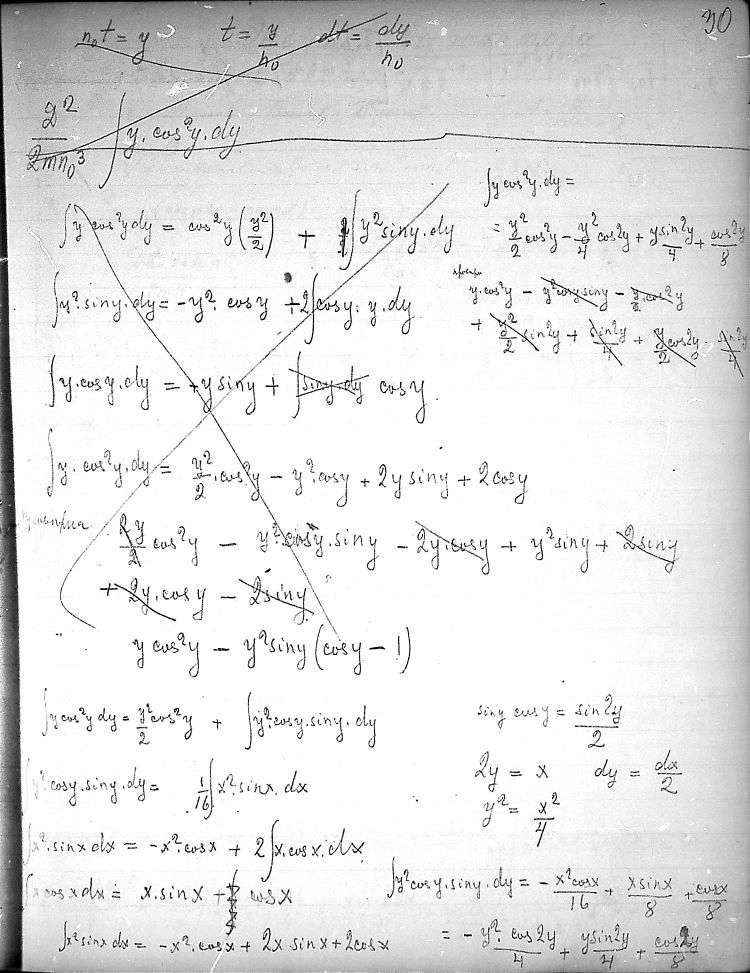 30
n₀t = y    t = y/n₀    dt = dy/n₀
2²/2mn₀³ ∫ y · cos²y · dy
∫ y cos²y dy = cos²y (y²/2) + ∫ y² siny · dy
∫ y² · siny · dy = -y² · cosy + 2∫ cosy · y · dy
∫ y · cosy · dy = +y siny + ∫ siny · dy cosy
∫ y · cos²y · dy = y²/2 · cos²y - y² · cosy + 2y siny + 2cosy
2y/2 cos²y - y² · cosy · siny - 2y · cosy + y² siny + 2siny
+ 2y · cosy - 2siny
y cos²y - y² siny (cosy - 1)
∫ y cos²y · dy =
= y²/2 cos²y - y²/4 cos2y + y sin2y/4 + cos2y/8
y · cos²y - y² cosy siny - y/2 · cos2y
+ y²/2 sin2y + sin2y/4 + y/2 cos2y - sin2y/4
∫ y cos²y dy = y²/2 cos²y + ∫ y² · cosy · siny · dy
∫ y² · cosy · siny · dy = 1/16 ∫ x² · sinx · dx
∫ x² · sinx dx = -x² · cosx + 2∫ x · cosx · dx
∫ x cosx dx = x · sinx + cosx
∫ x² sinx dx = -x² · cosx + 2x sinx + 2cosx
siny cosy = sin2y/2
2y = x    dy = dx/2
y² = x²/4
∫ y² cosy · siny · dy = - x² cosx/16 + x sinx/8 + cosx/8
= - y² · cos2y/4 + y sin2y/4 + cos2y/8